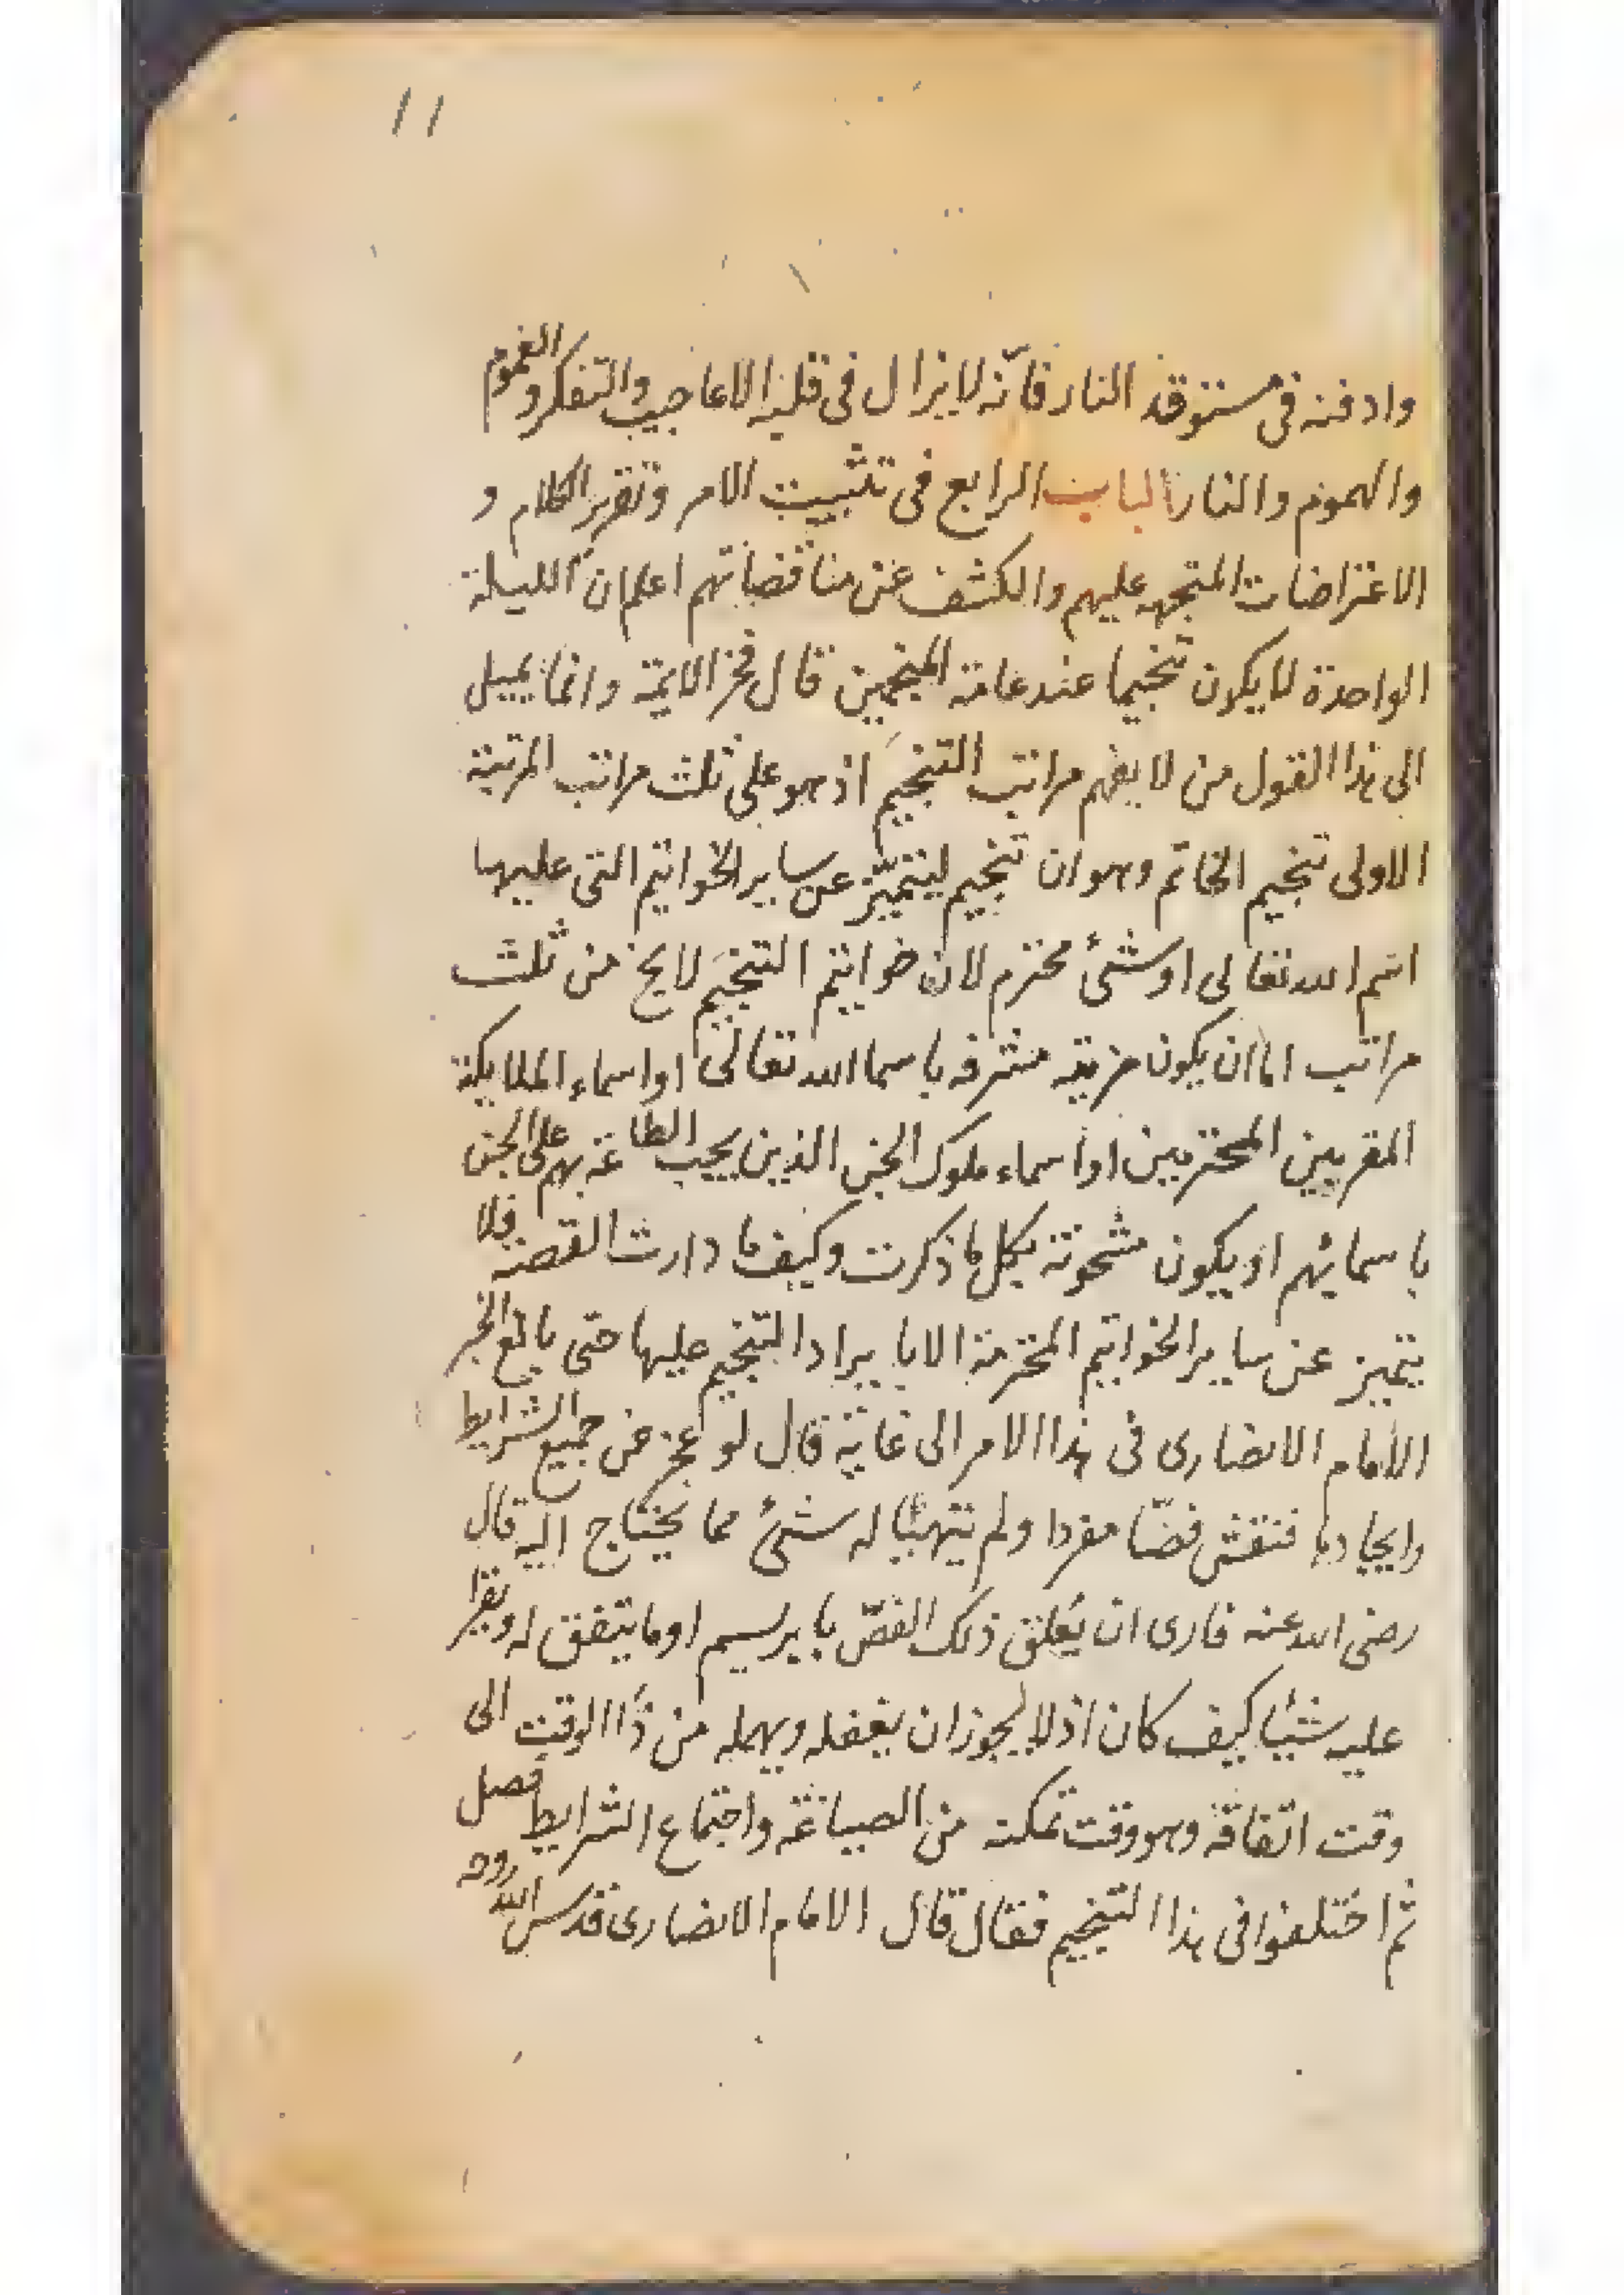 ١١
وادفنه فى مستوقد النار فانّه لا يزال فى قلبه الاعاجيب والتفكر والغموم
والهموم والنار الباب الرابع فى تثبيت الامر وتقرير الكلام و
الاعتراضات المتجهه عليهم والكشف عن مناقضاتهم اعلم ان الليلة
الواحدة لا يكون تنجيما عند عامة المنجمين قال فخر الايمة وانما يميل
الى هذا القول من لا يفهم مراتب التنجيم اذ هو على ثلث مراتب المرتبة
الاولى تنجيم الخاتم وهو ان تنجيم ليتميّز عن ساير الخواتيم التى عليها
اسم الله تعالى او شئ محترم لان خواتيم التنجيم لا يخ من ثلث
مراتب اما ان يكون مشرفه باسما الله تعالى او اسماء الملايكة
المقربين المحترمين او اسماء ملوك الجن الذين يجب الطاعة بهم على الجن
باسمايهم او يكون مشحونة بكل ما ذكرت وكيف ما دارت القصة فلا
يتميز عن ساير الخواتيم المحترمة الا بايراد التنجيم عليها حتى بالغ الخبر
الامام الانصارى فى هذا الامر الى غاية قال لو عجز عن جميع الشرايط
وايجادها فنقش فصّا مفردا ولم يتهيّأ له شئ مما يحتاج اليه قال
رضى الله عنه فارى ان يُعلق ذلك الفصّ بابريسم او ما يتفق له ويقرا
عليه شيئا كيف كان اذ لا يجوز ان يغفله ويهمله من ذا الوقت الى
وقت اتفاقه وهو وقت تمكنه من الصياغة واجتماع الشرايط فصل
ثم اختلفوا فى هذا التنجيم فقال قال الامام الانصارى قدس الله روحه